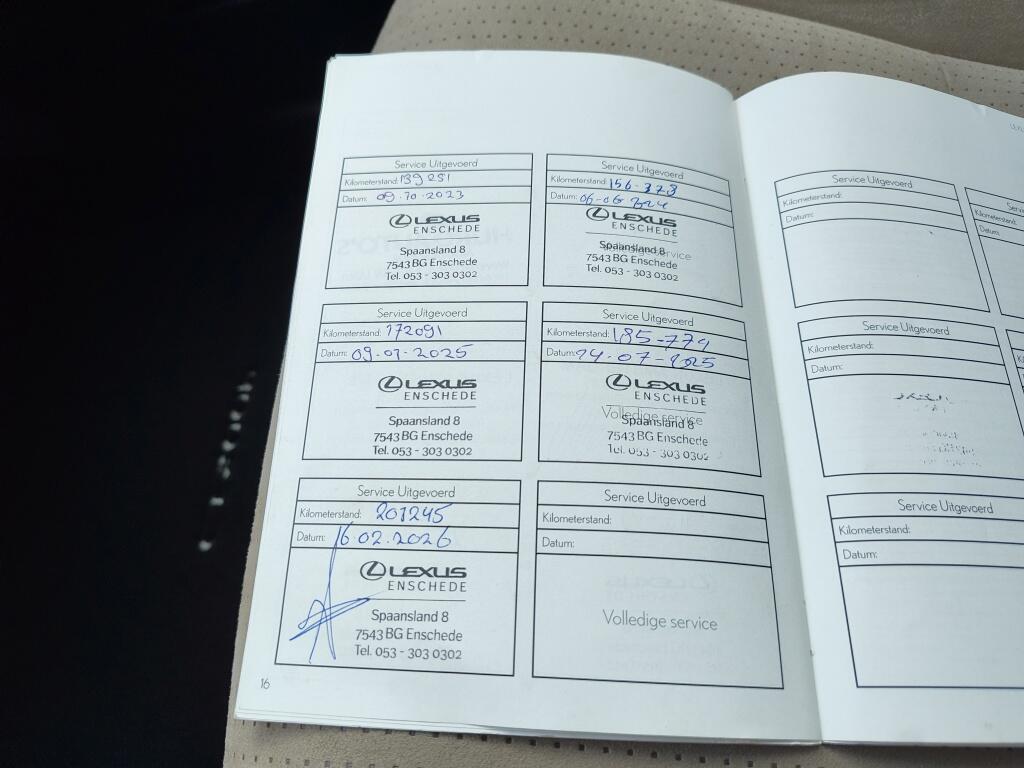 Service Uitgevoerd
Kilometerstand: 139 251
Datum: 09.10.2023
LEXUS
ENSCHEDE
Spaansland 8
7543 BG Enschede
Tel. 053 - 303 0302
Service Uitgevoerd
Kilometerstand: 156-378
Datum: 06-06 2024
LEXUS
ENSCHEDE
Spaansland 8
7543 BG Enschede
Tel. 053 - 303 0302
Service Uitgevoerd
Kilometerstand: 172091
Datum: 09.01-2025
LEXUS
ENSCHEDE
Spaansland 8
7543 BG Enschede
Tel. 053 - 303 0302
Service Uitgevoerd
Kilometerstand: 185-774
Datum: 14-07-2025
LEXUS
ENSCHEDE
Volledige service
Spaansland 8
7543 BG Enschede
Tel. 053 - 303 0302
Service Uitgevoerd
Kilometerstand: 201245
Datum: 16.02.2026
LEXUS
ENSCHEDE
Spaansland 8
7543 BG Enschede
Tel. 053 - 303 0302
Service Uitgevoerd
Kilometerstand:
Datum:
Volledige service
16
Service Uitgevoerd
Kilometerstand:
Datum:
Kilometerstand:
Datum:
Service Uitgevoerd
Kilometerstand:
Datum:
Service Uitgevoerd
Kilometerstand:
Datum: